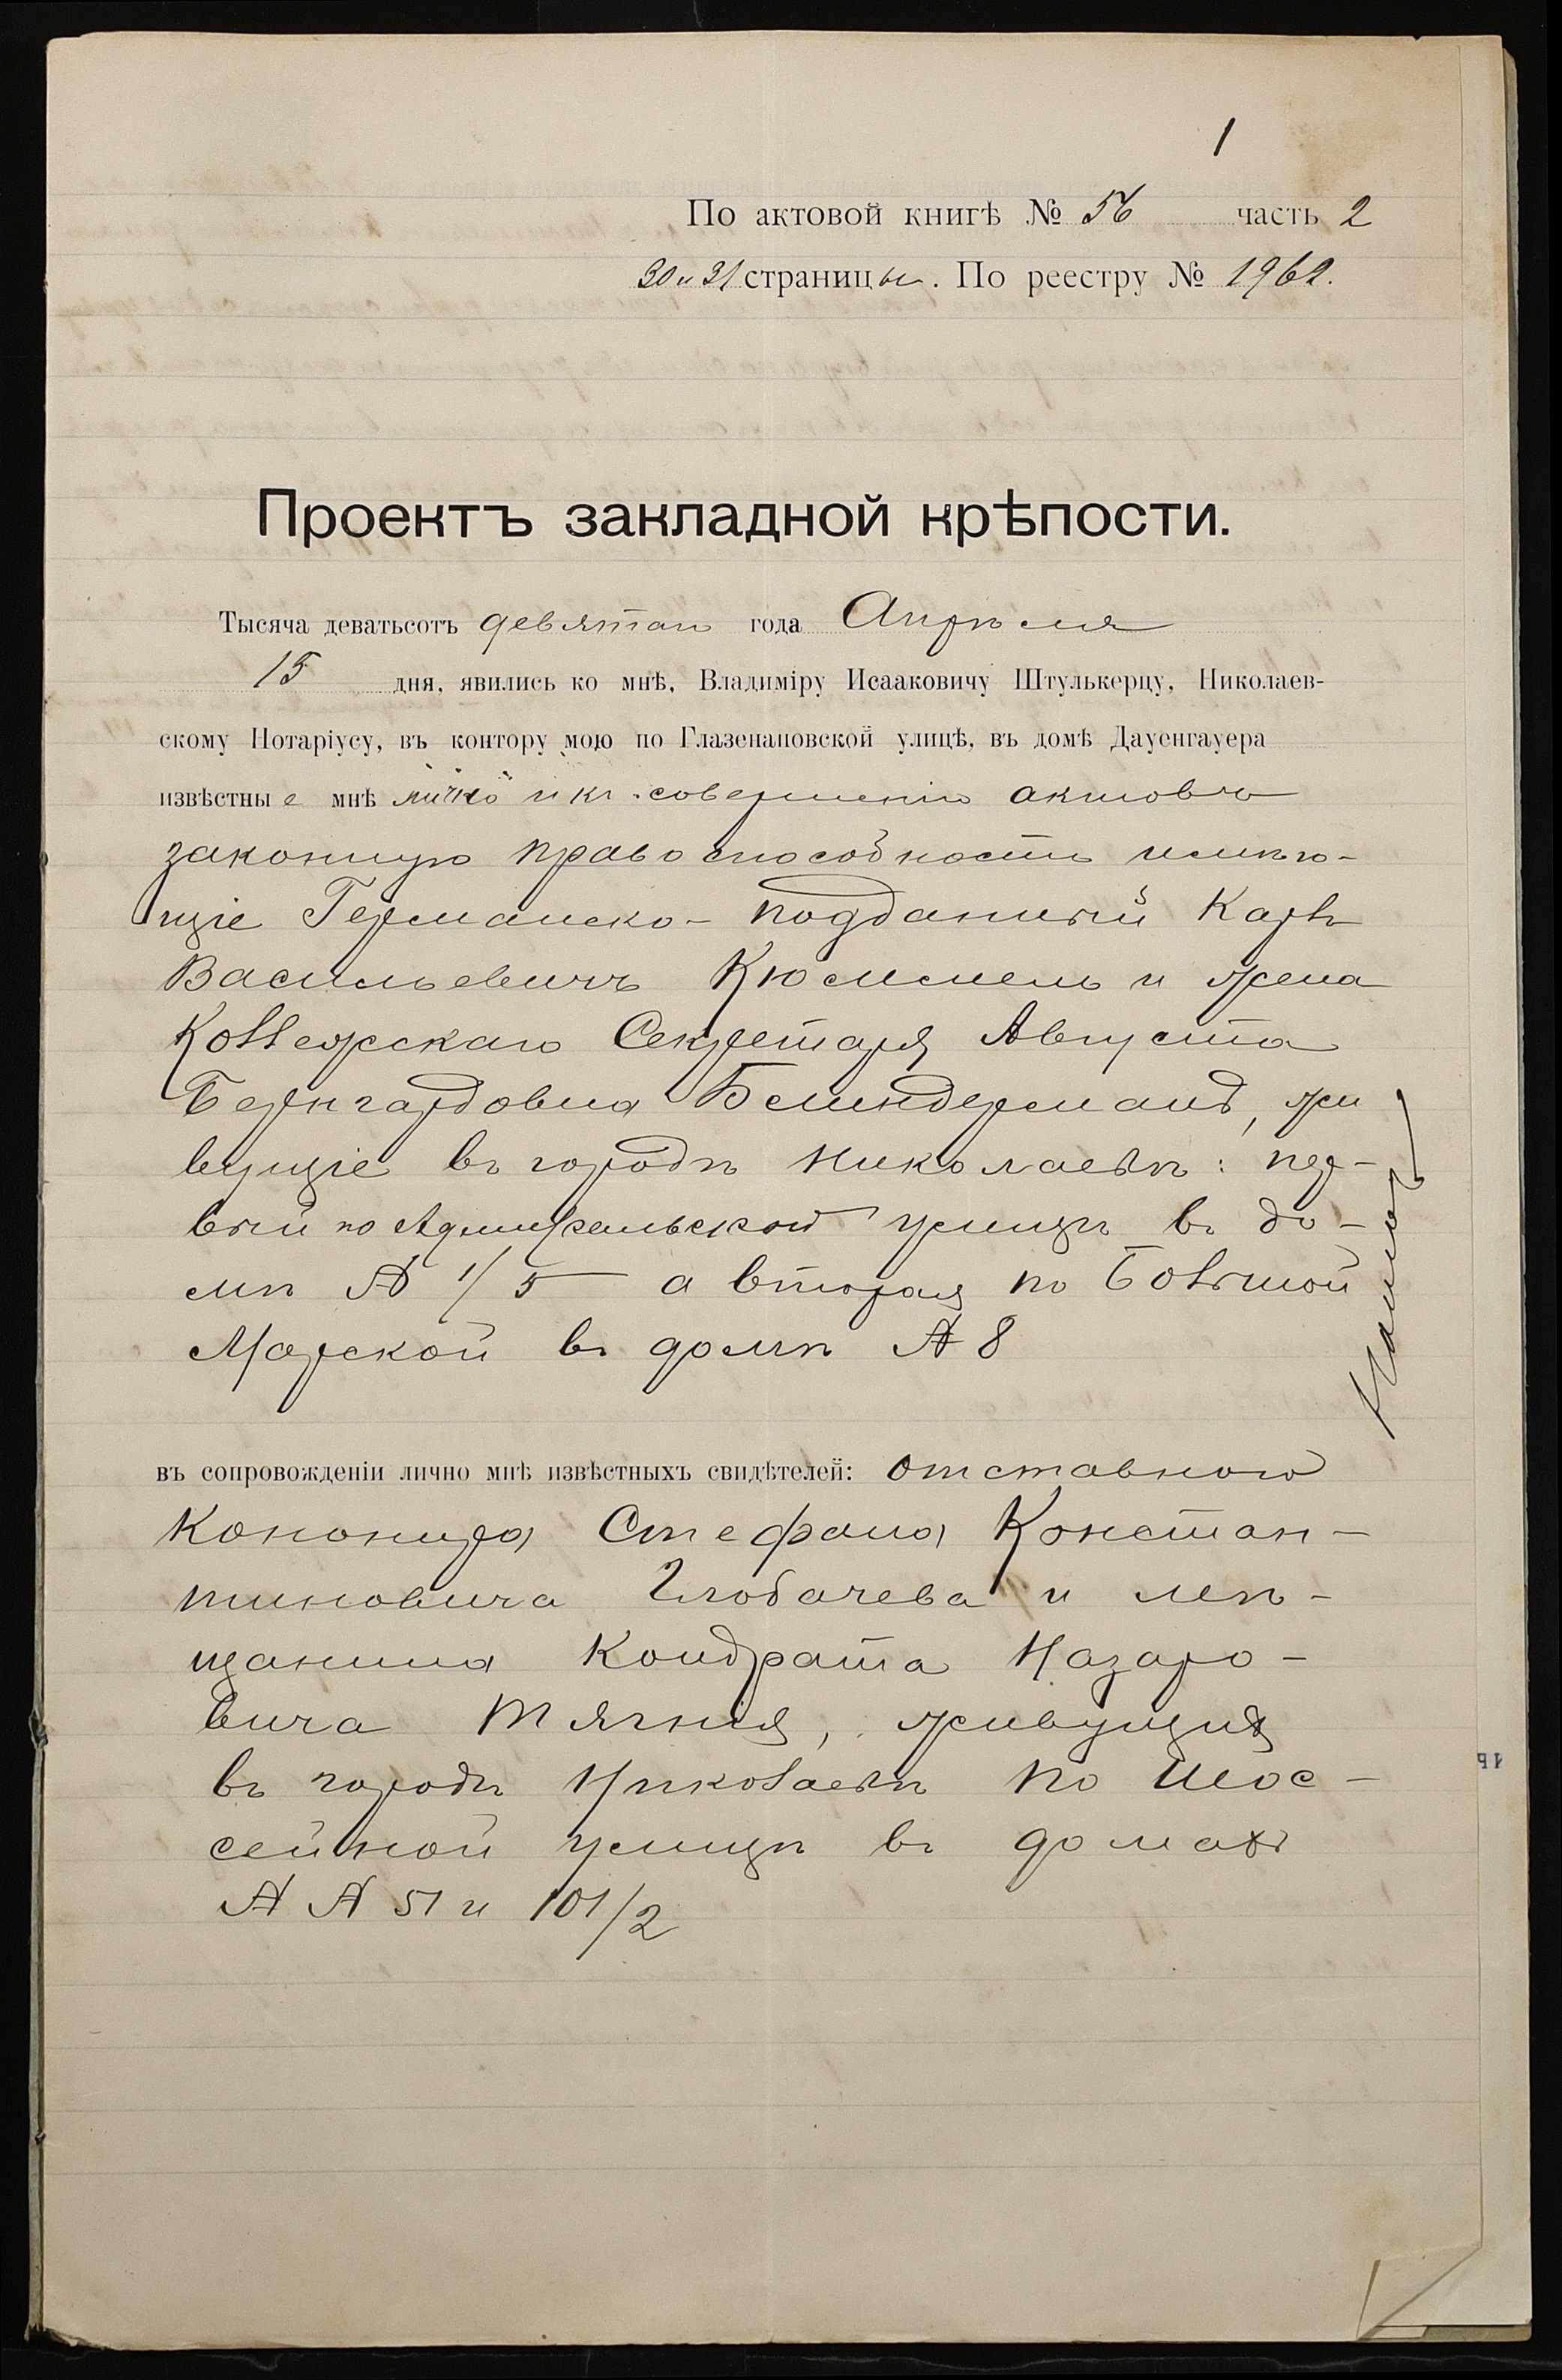 1
По актовой книгѣ № 56 часть 2
30 и 31 страницы. По реестру № 1962.
Проектъ закладной крѣпости.
Тысяча деватьсотъ девятаго года Апрѣля
15 дня, явились ко мнѣ, Владиміру Исааковичу Штулькерцу, Николаев-
скому Нотаріусу, въ контору мою по Глазенаповской улицѣ, въ домѣ Дауенгауера
извѣстные мнѣ лично и къ совершенію актовъ
законную правоспособность имѣю-
щіе Германско-подданный Карлъ
Васильевичъ Кюммель и жена
Коллежскаго Секретаря Августа
Бернгардовна Бминдерманъ, жи
вущіе въ городѣ Николаевѣ: пер-
вый по Адмиральской улицѣ въ до-
мѣ № 1/5 а вторая по Большой
Морской въ домѣ № 8
въ сопровожденіи лично мнѣ извѣстныхъ свидѣтелей: отставного
Канонира Стефана Констан-
тиновича Глобачева и мѣ-
щанина Кондрата Назаро-
вича Тягнія, живущихъ
въ городѣ Николаевѣ по Шос-
сейной улицѣ въ домахъ
№ № 51 и 101/2